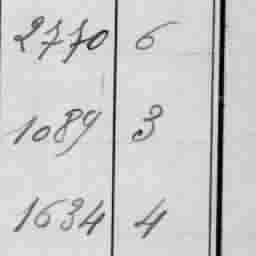 2770 6
1089 3
1634 4